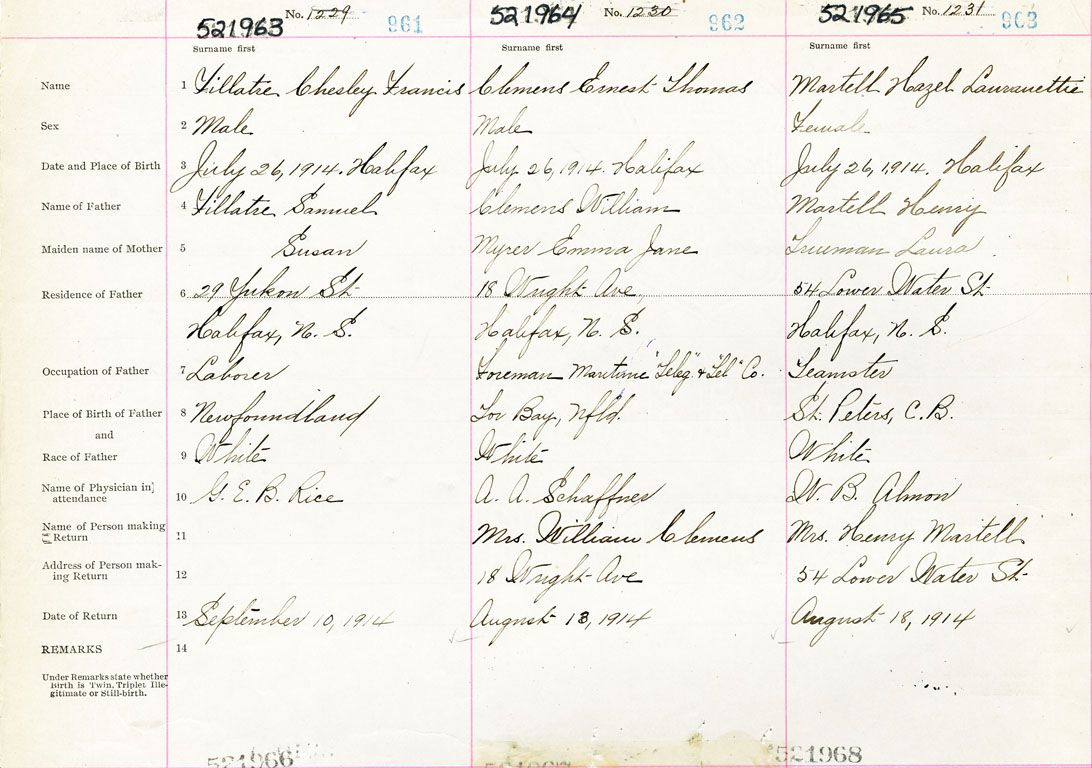 No. 1229 961 No. 1230 962 No. 1231 963
521963 521964 521965
Surname first Surname first Surname first
Name 1 Fillatre Chesley Francis Clemens Ernest Thomas Martell Hazel Lauranettie
Sex 2 Male Male Female
Date and Place of Birth 3 July 26, 1914. Halifax July 26, 1914. Halifax July 26, 1914. Halifax
Name of Father 4 Fillatre Samuel Clemens William Martell Henry
Maiden name of Mother 5 Susan Myrer Emma Jane Trueman Laura
Residence of Father 6 29 Yukon St. 18 Wright Ave., 54 Lower Water St.
Halifax, N. S. Halifax, N. S. Halifax, N. S.
Occupation of Father 7 Laborer Foreman Maritime "Teleg" & "Tel" Co. Teamster
Place of Birth of Father 8 Newfoundland Tor Bay, Nfld. St. Peters, C. B.
and
Race of Father 9 White White White
Name of Physician in attendance 10 G. E. B. Rice A. A. Schaffner W. B. Almon
Name of Person making Return 11 Mrs. William Clemens Mrs. Henry Martell
Address of Person mak-
ing Return 12 18 Wright Ave 54 Lower Water St.
Date of Return 13 September 10, 1914 August 13, 1914 August 18, 1914
REMARKS 14
Under Remarks state whether
Birth is Twin, Triplet Ille-
gitimate or Still-birth.
521966 521967 521968